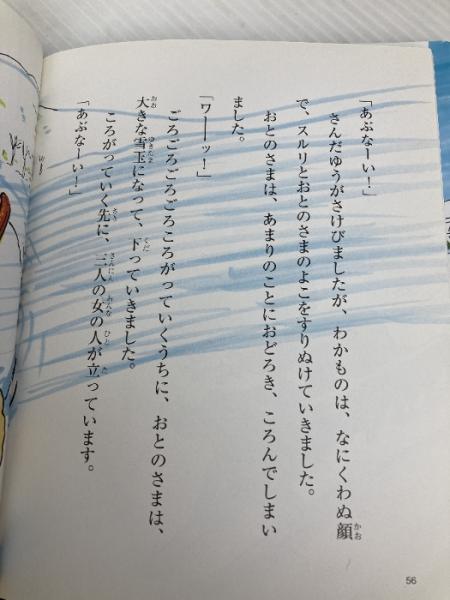 「あぶなーい！」
さんだゆうがさけびましたが、わかものは、なにくわぬ顔
で、スルリとおとのさまのよこをすりぬけていきました。
おとのさまは、あまりのことにおどろき、ころんでしまい
ました。
「ワーーッ！」
ごろごろごろごろころがっていくうちに、おとのさまは、
大きな雪玉になって、下っていきました。
ころがっていく先に、三人の女の人が立っています。
「あぶなーい！」
56